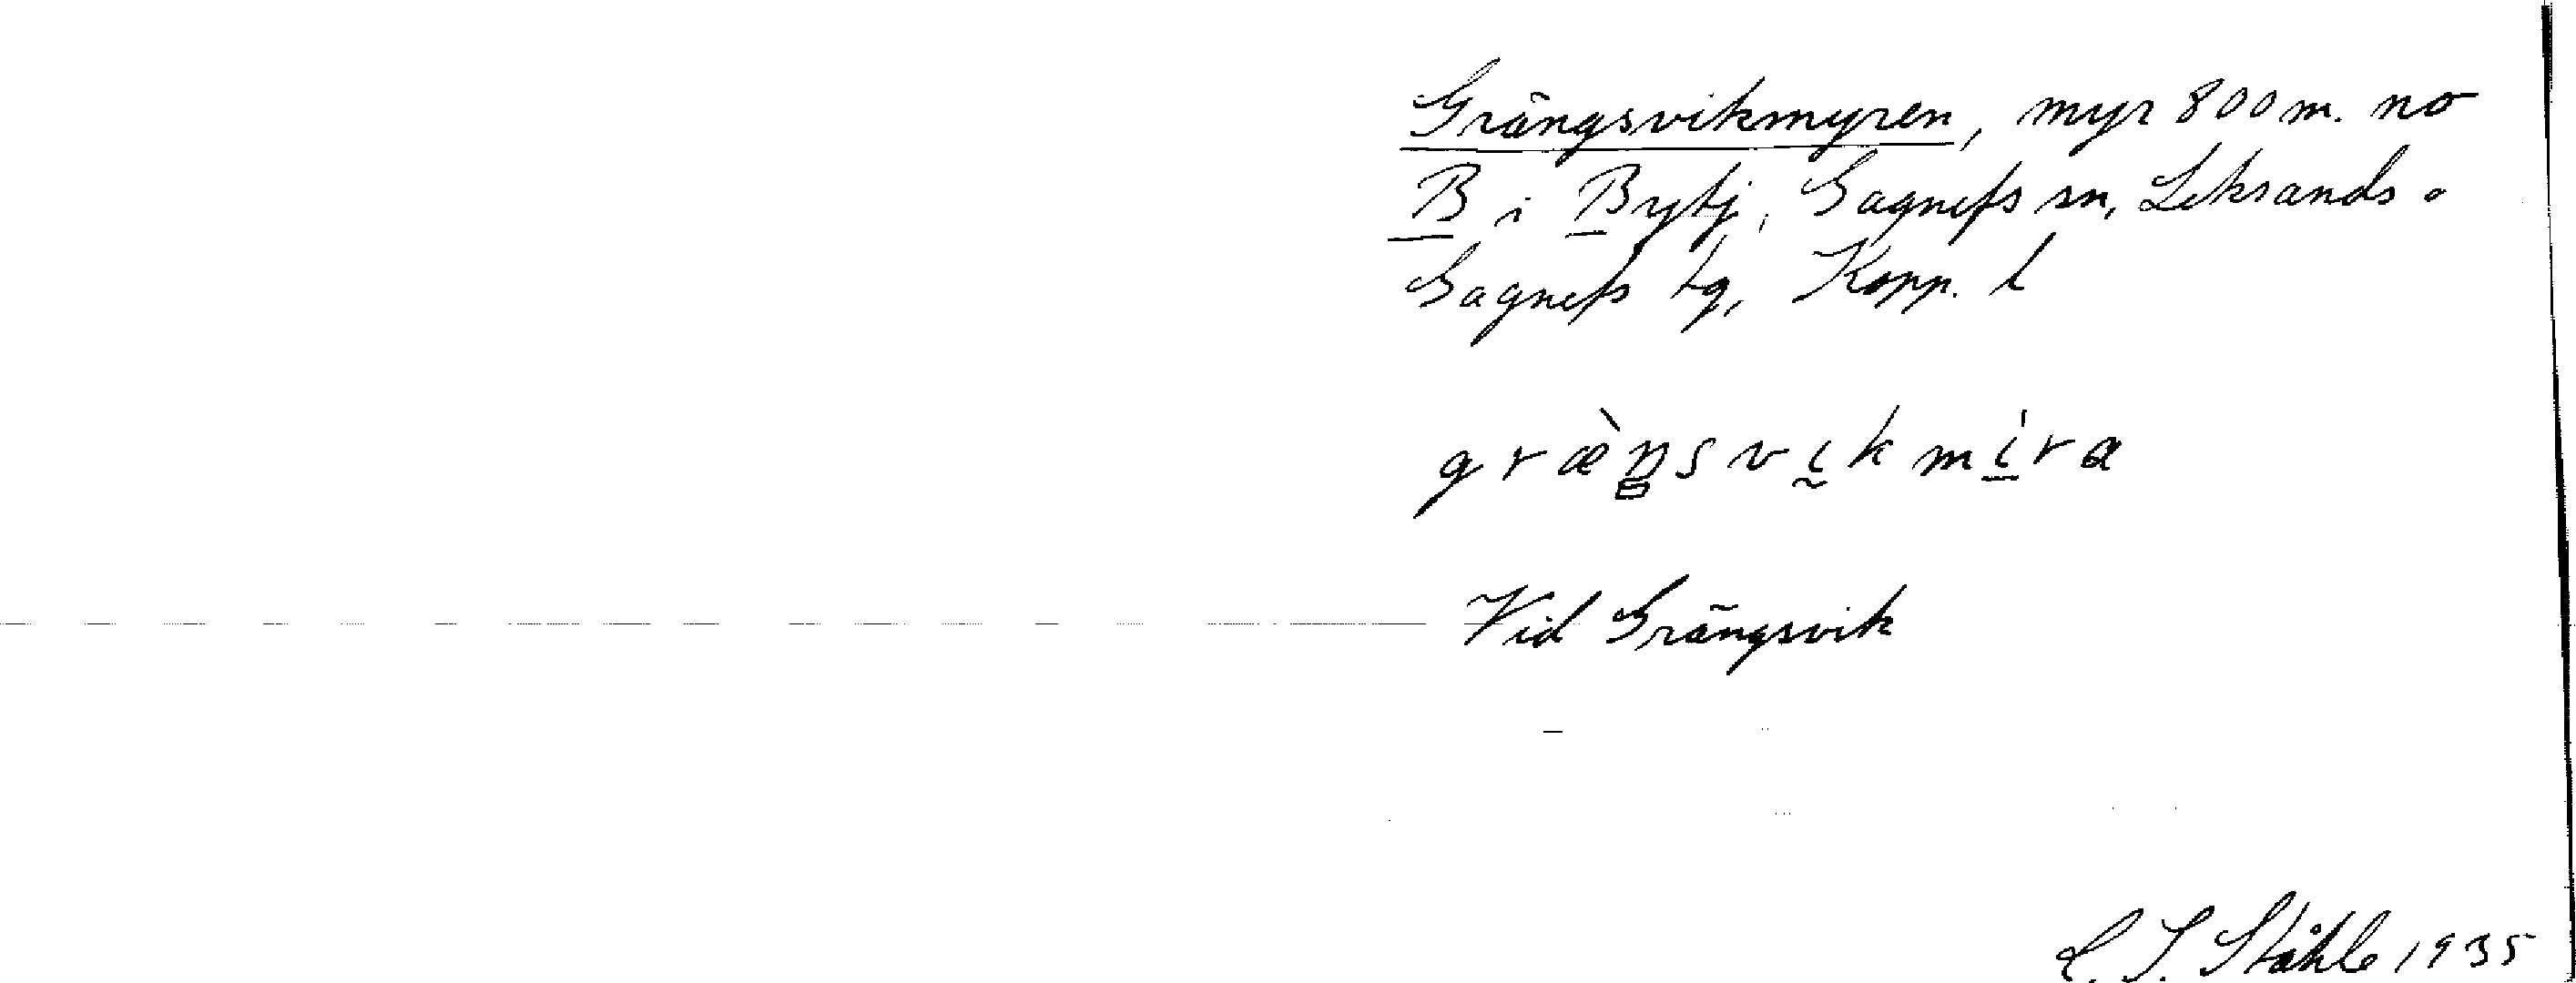 Grängsvikmyren, myr 800 m. no
B i Bytj, Gagnefs sn, Leksands o
Gagnefs tg, Kopp. l
græ̀ŋsvikmíra
Vid Grängsvik
C. I. Ståhle 1935